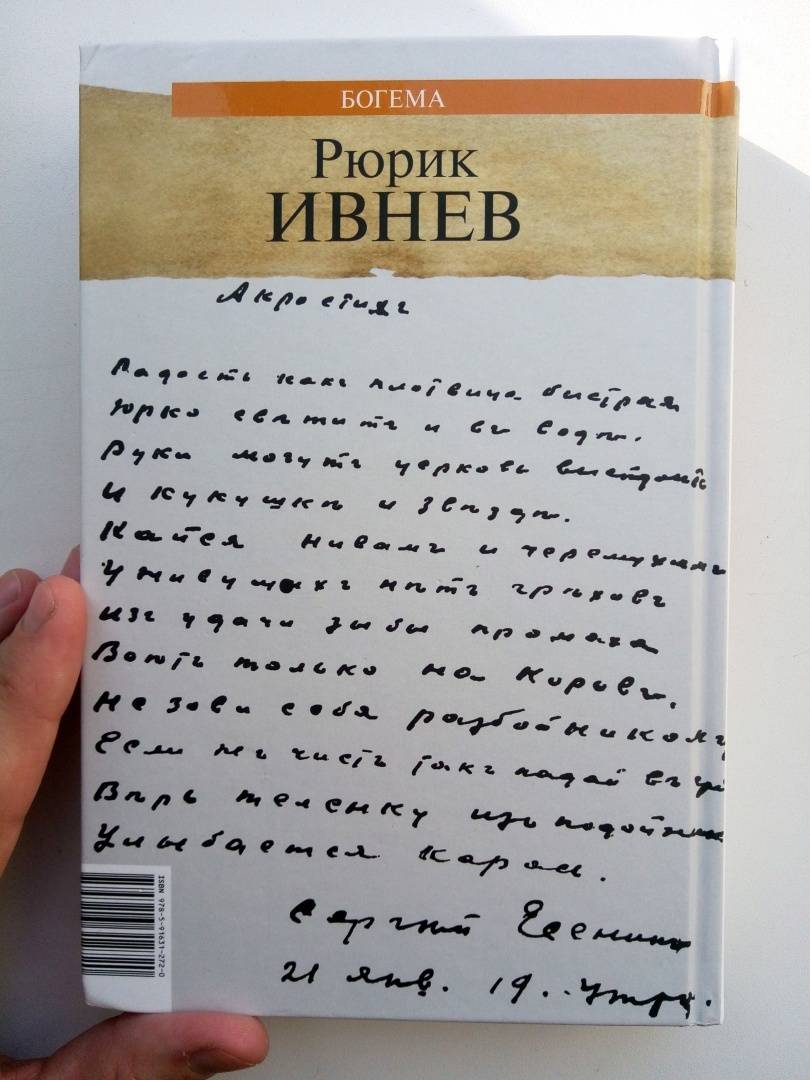 БОГЕМА
Рюрик
ИВНЕВ
Акростихъ
Радость какъ плотвица быстрая
Юрко светитъ и въ водѣ.
Руки могутъ церковь выстроить
И кукушкѣ и звѣздѣ.
Кайся нивамъ и черемухамъ
У живущихъ нѣтъ грѣховъ
Изъ удачи зыбы промаха
Воютъ только на Коровъ.
Не зови себя разбойникомъ
Если жъ чистъ такъ падай въ
Вѣрь теленку изъ подойник
Улыбается карась.
Сергѣй Есенинъ
21 янв. 19..
ISBN 978-5-91631-272-0